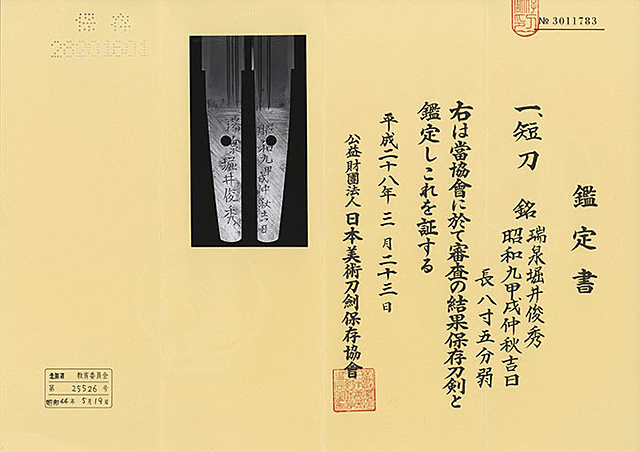 № 3011783
鑑定書
一、短刀 銘 瑞泉堀井俊秀
昭和九甲戌仲秋吉日
長 八寸五分弱
右は當協會に於て審査の結果保存刀剣と
鑑定しこれを証する
平成二十八年 三 月 二十三 日
公益財團法人 日本美術刀剣保存協會
保存
昭和九甲戌仲秋吉日
瑞泉堀井俊秀
北海道 教育委員会
第 25526 号
昭和44年 5月19日